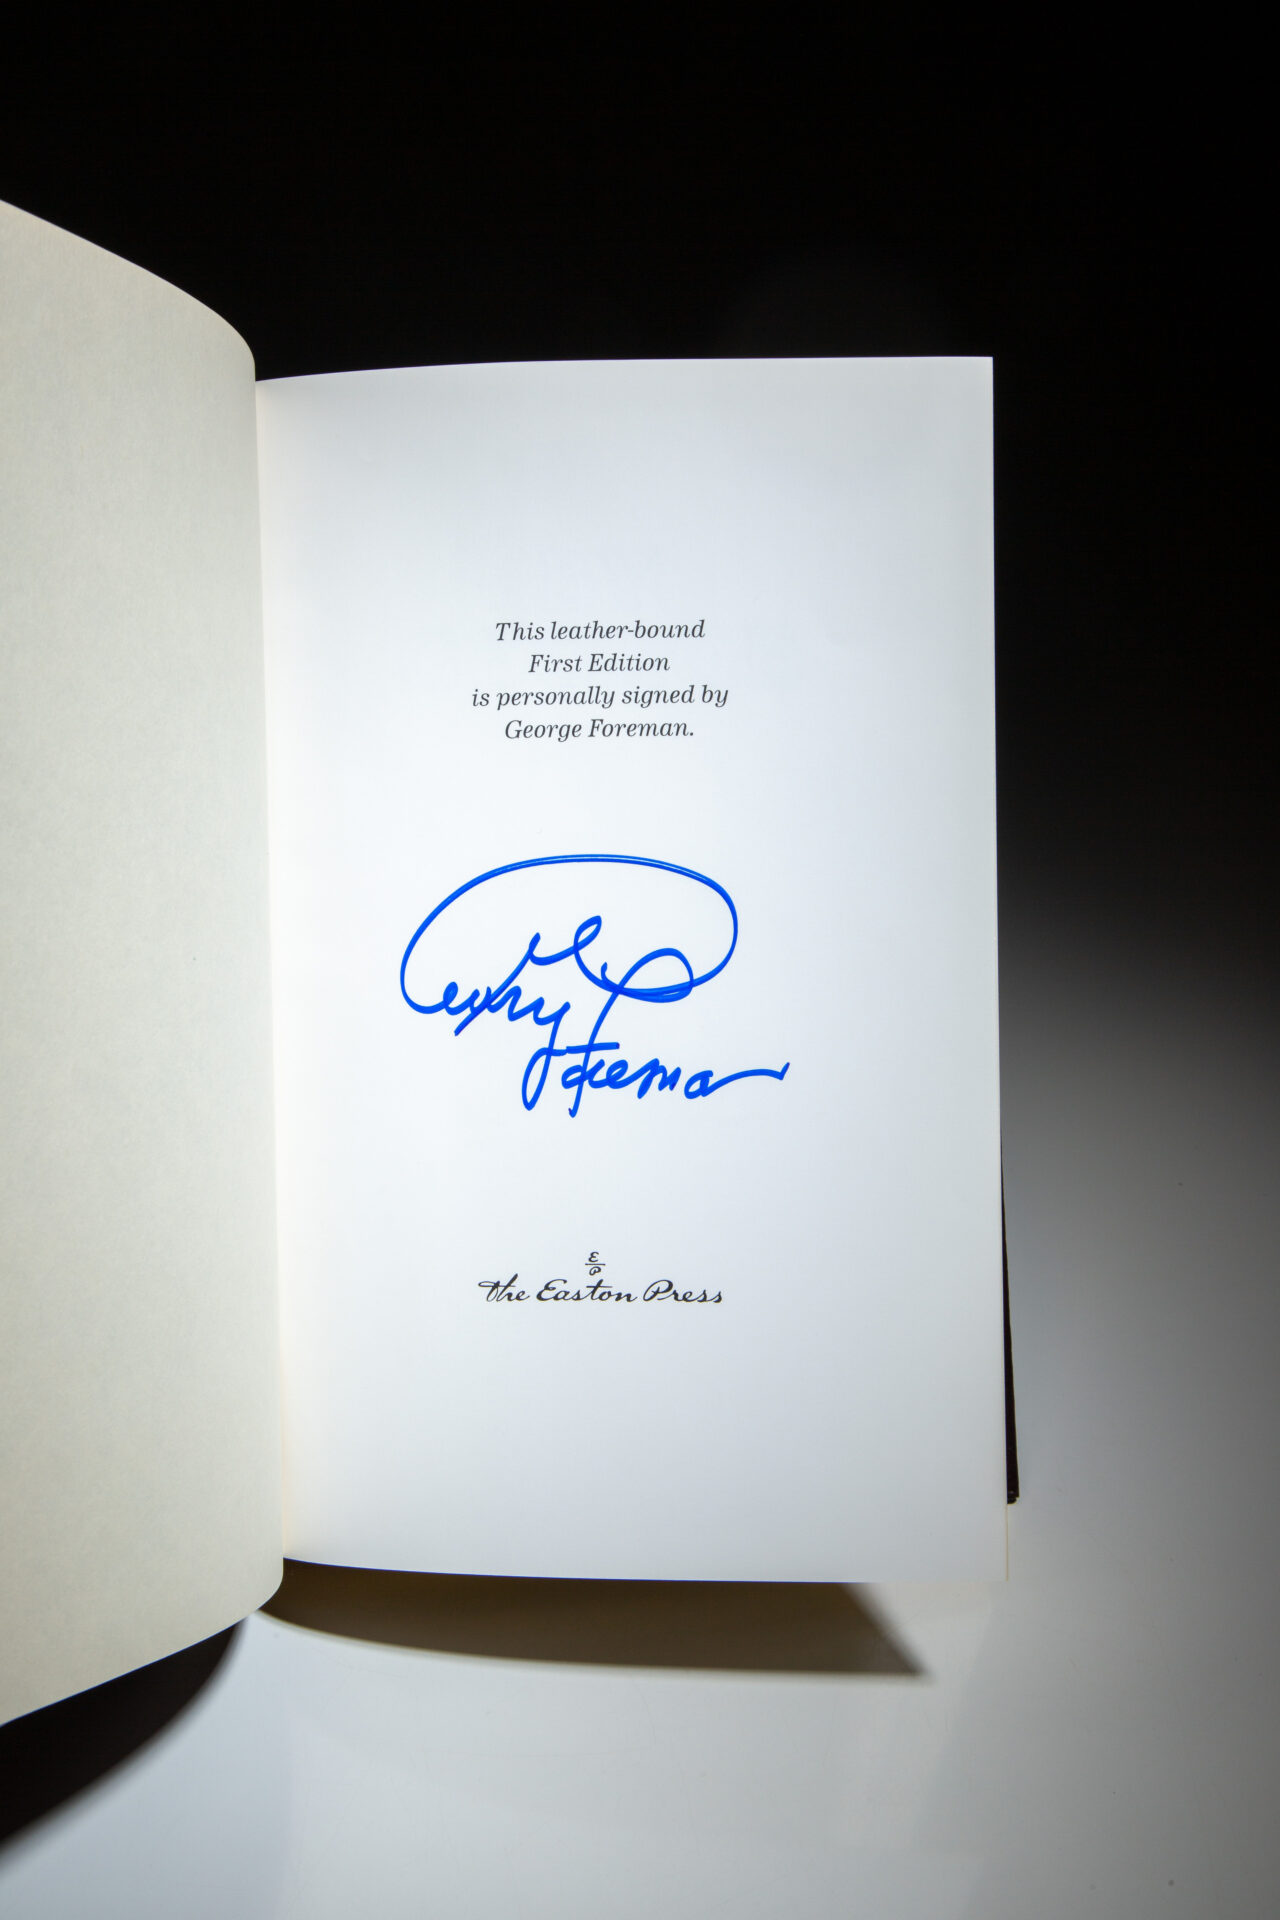 This leather-bound
First Edition
is personally signed by
George Foreman.
George Foreman
E
P
The Easton Press